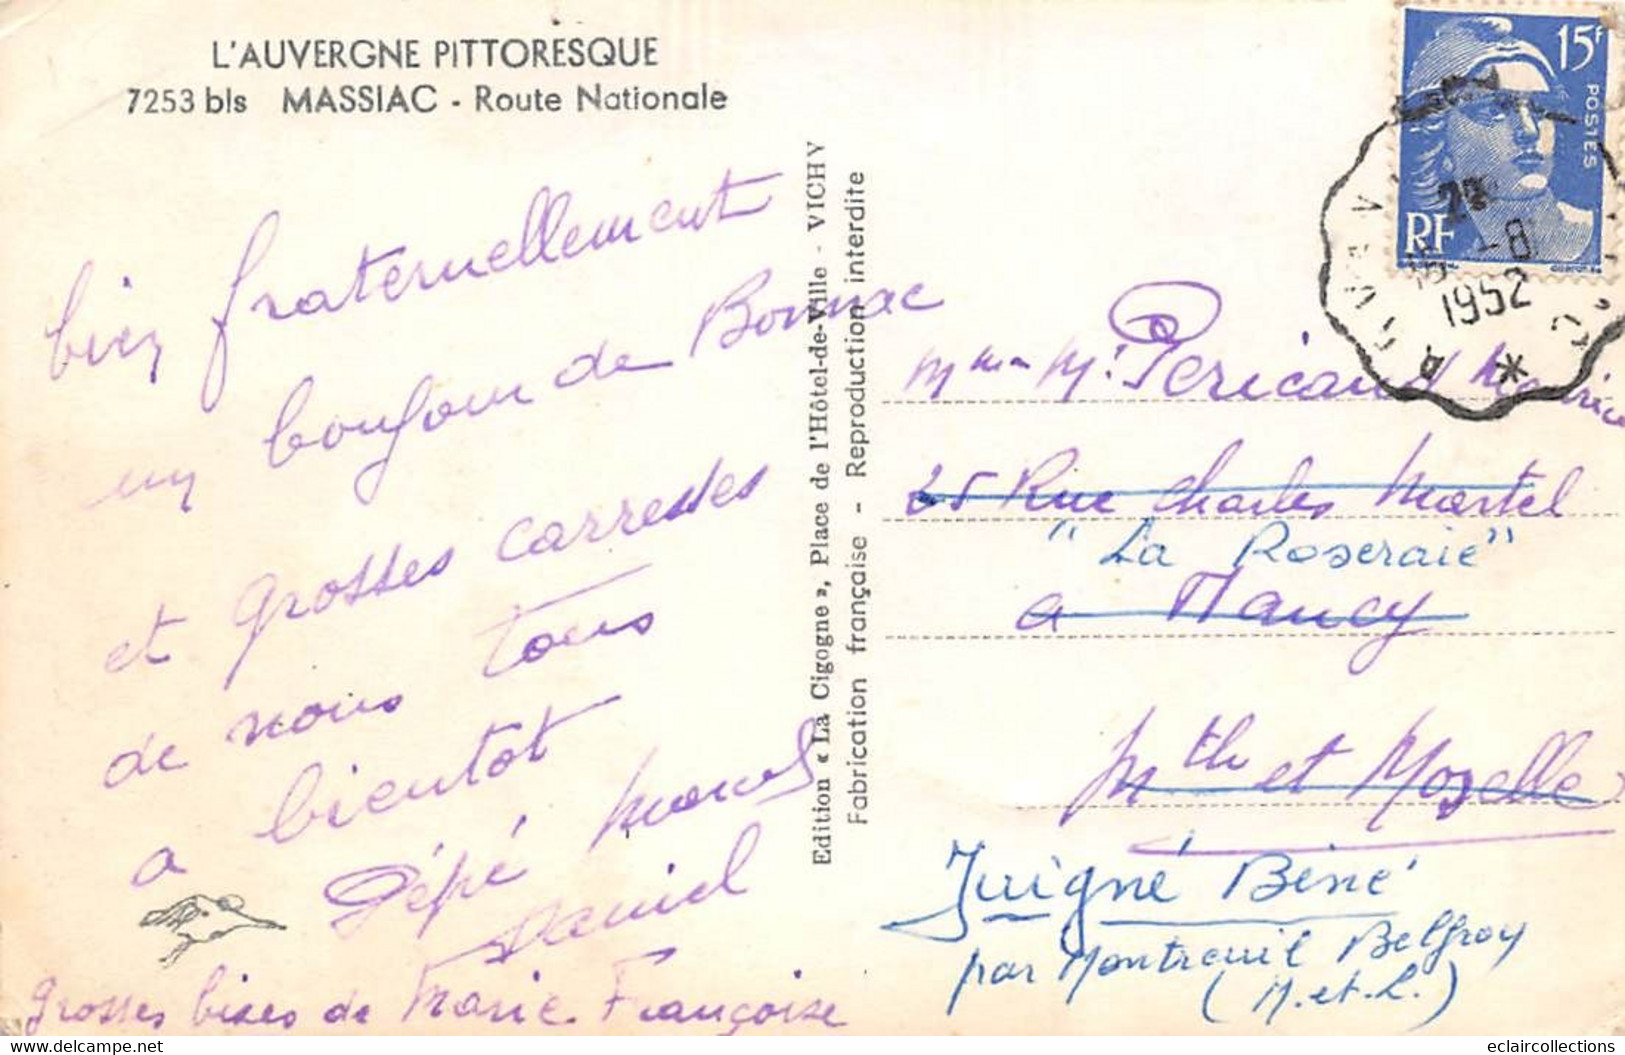 L'AUVERGNE PITTORESQUE
7253 bis MASSIAC - Route Nationale
bien fraternellement
un bonjour de Bonnac
et grosses carresses
de nous tous
a bientot
Pépé Marcel
Daniel
Grosses bises de Marie Françoise
Edition « La Cigogne », Place de l'Hôtel-de-Ville - VICHY
Fabrication française - Reproduction interdite
15F
POSTES
RF
28
-8
1952
Pericaud Maurice
25 Rue Charles Martel
"La Roseraie"
a Nancy
Mthe et Mozelle
Juigné Béné
par Montreuil Belfroy
(M.et.L.)
eclaircollections